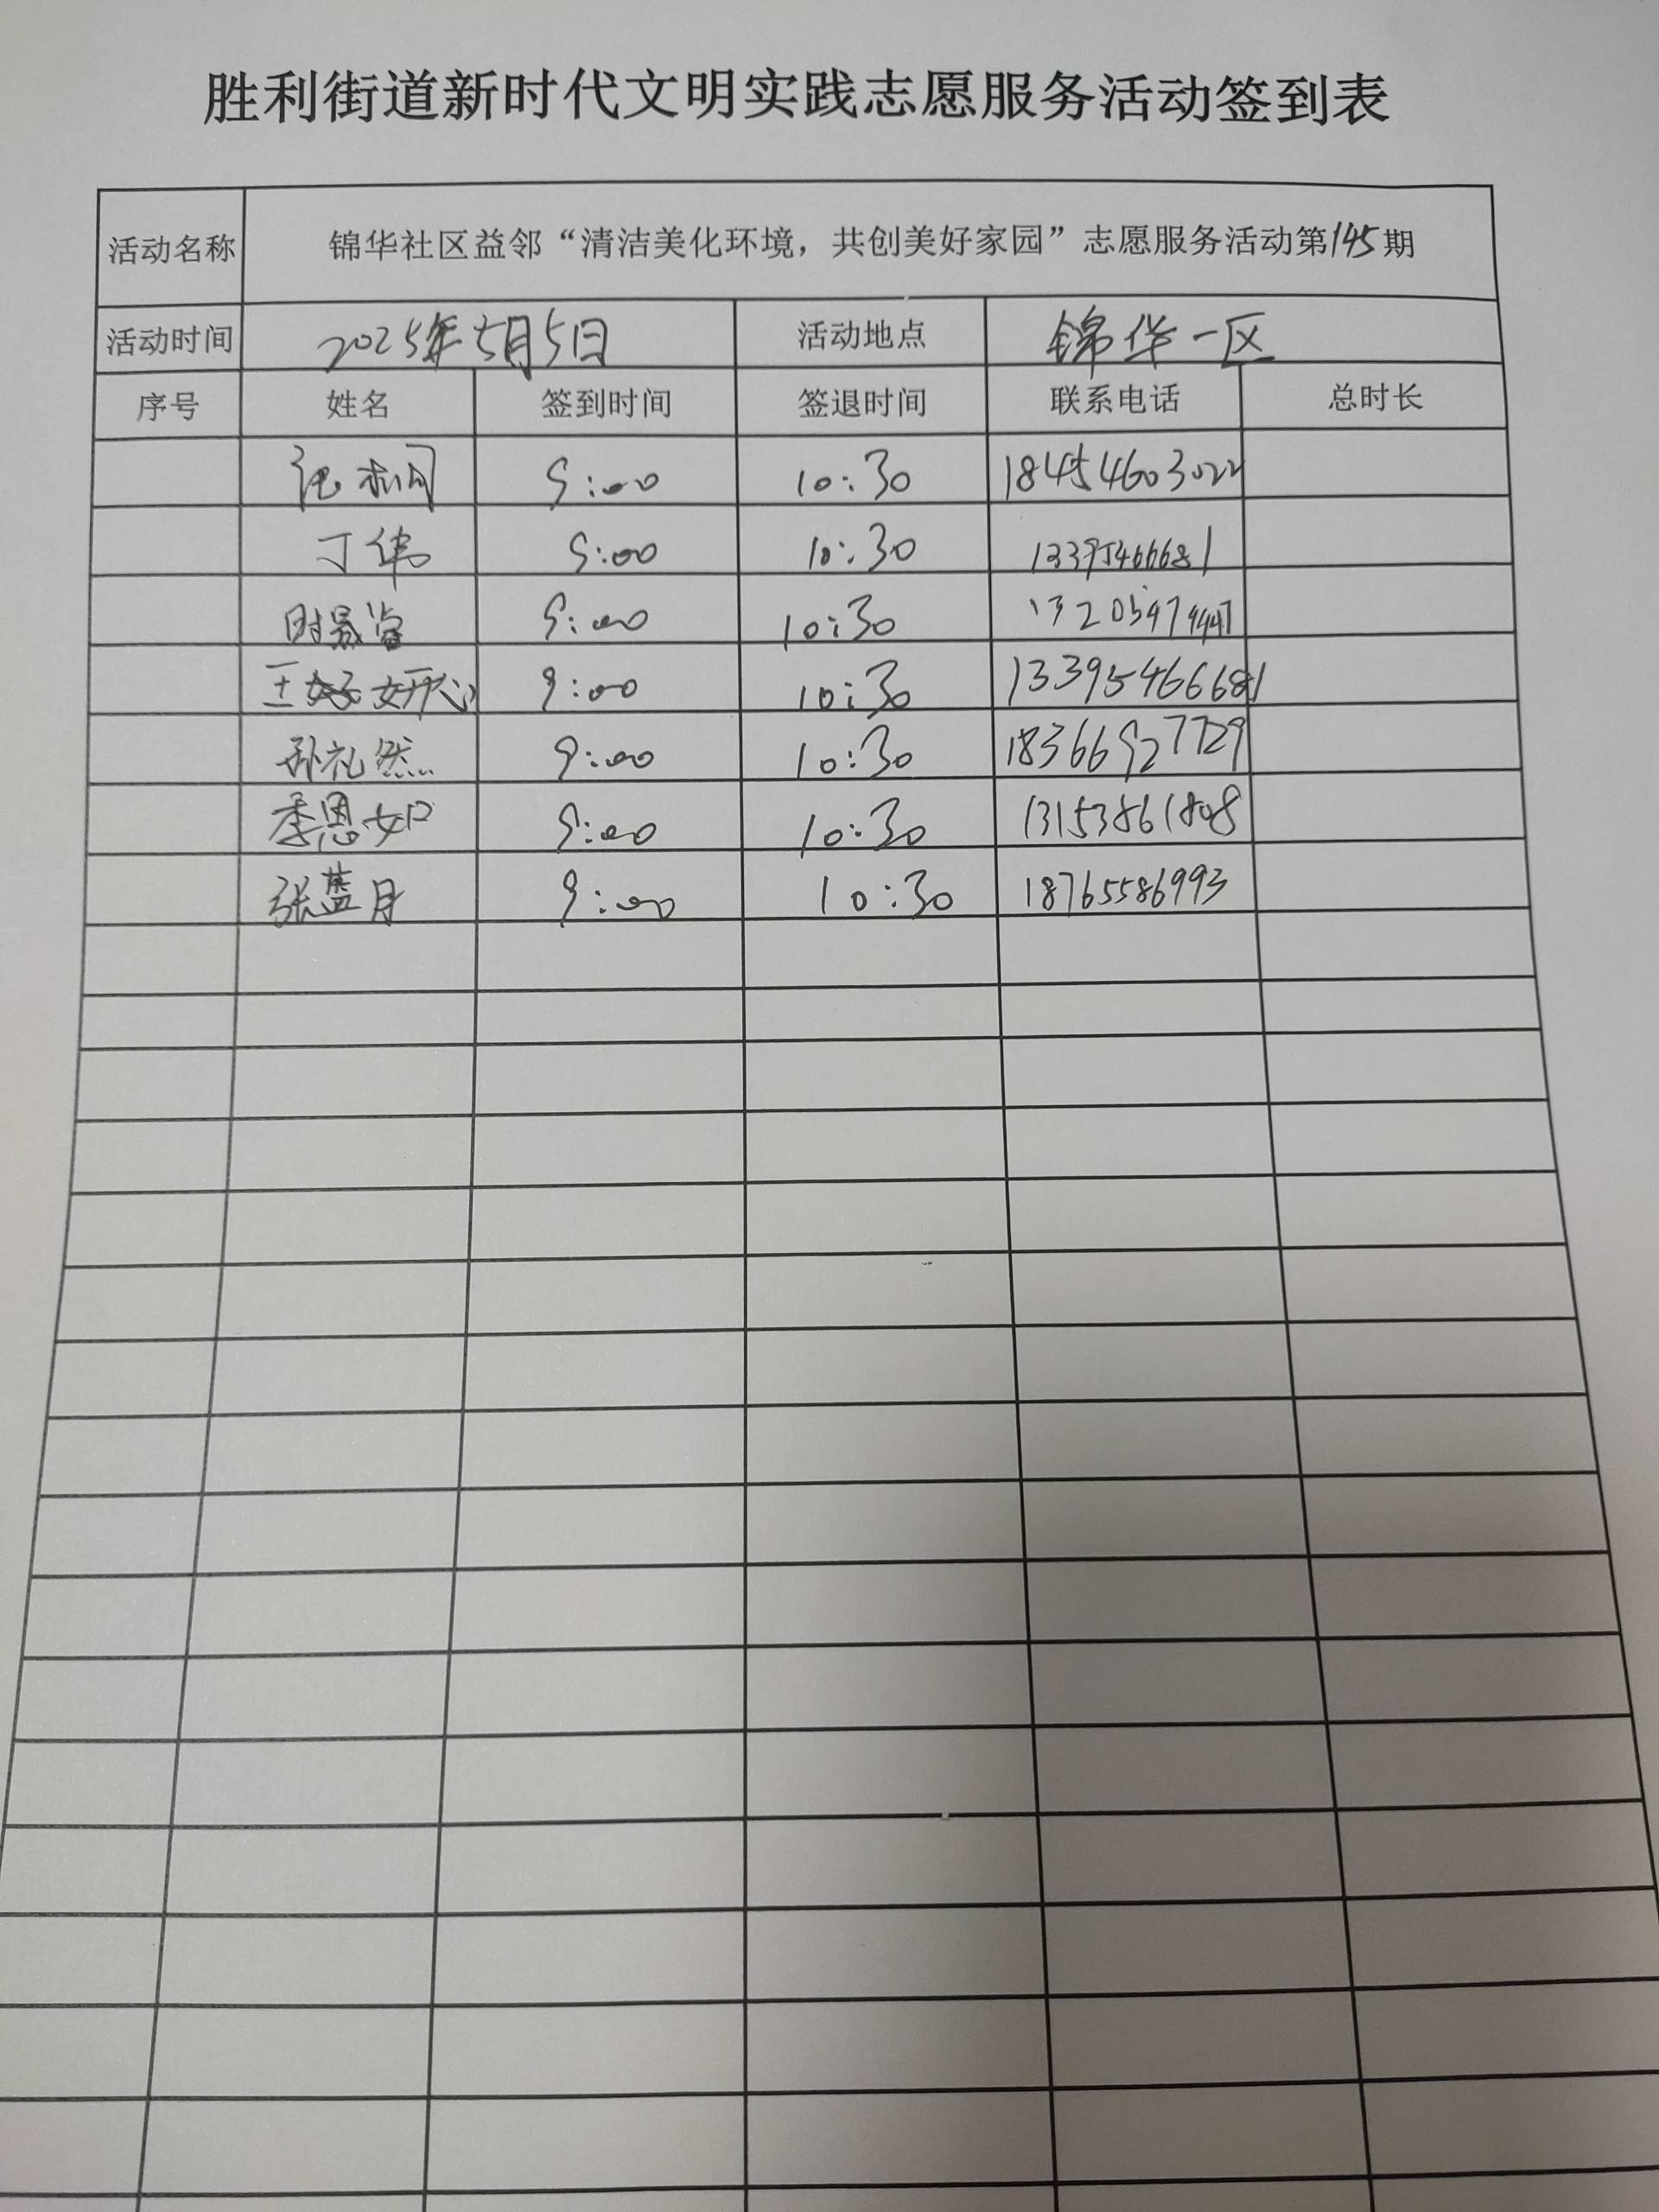 胜利街道新时代文明实践志愿服务活动签到表
活动名称 锦华社区益邻“清洁美化环境，共创美好家园”志愿服务活动第145期
活动时间 2025年5月5日 活动地点 锦华一区
序号 姓名 签到时间 签退时间 联系电话 总时长
9:00 10:30 18454603022
丁伟 9:00 10:30 13395466681
9:00 10:30
王妍心 9:00 10:30 13395466681
孙礼然 9:00 10:30 18366927729
季恩如 9:00 10:30 13153861808
张蓝月 9:00 10:30 18765586993